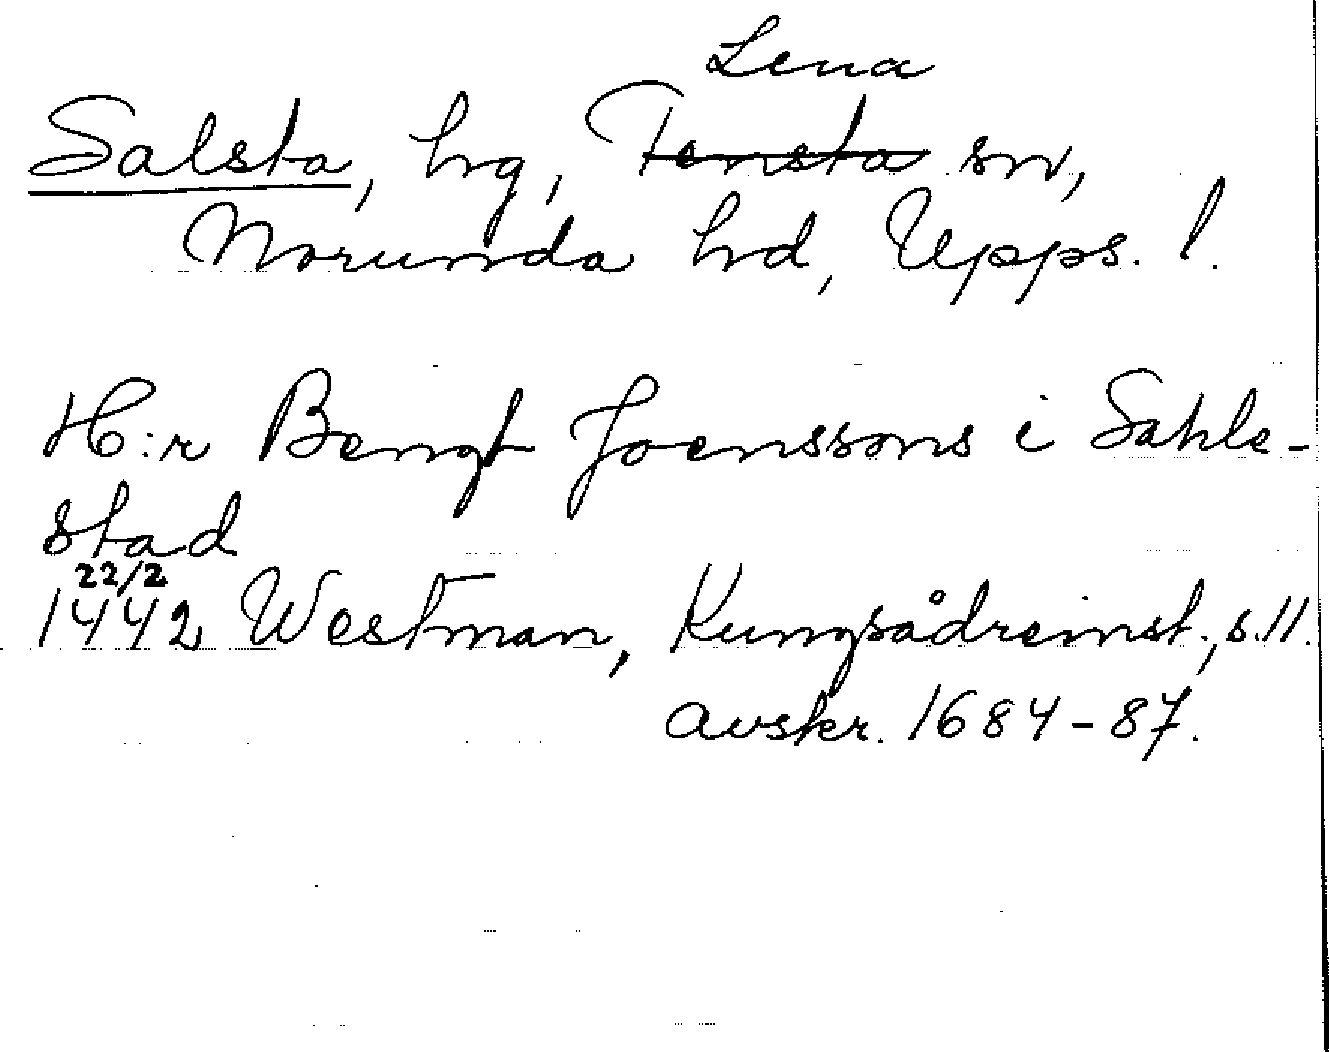 Lena
Salsta, hg, Tensta sn,
Norunda hd, Upps. l.
H:r Bengt Joenssons i Sahle-
stad
22/2
1442 Westman, Kungsådreinst., s. 11.
avskr. 1684-87.